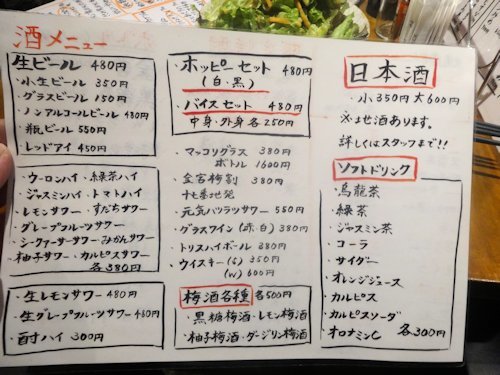 酒メニュー
生ビール 480円
・小生ビール 350円
・グラスビール 150円
・ノンアルコールビール 480円
・瓶ビール 550円
・レッドアイ 450円
・ウーロンハイ・緑茶ハイ
・ジャスミンハイ・トマトハイ
・レモンサワー・すだちサワー
・グレープフルーツサワー
・シークァーサーサワー・みかんサワー
・柚子サワー・カルピスサワー
各380円
・生レモンサワー 480円
・生グレープフルーツサワー 480円
・酎ハイ 300円
・ホッピーセット 480円
(白・黒)
・バイスセット 480円
中身・外身各250円
・マッコリグラス 380円
ボトル 1600円
・金宮梅割 380円
十七番地発
・元気ハツラツサワー 550円
・グラスワイン(赤・白) 380円
・トリスハイボール 380円
・ウイスキー(S) 350円
(W) 600円
梅酒各種 各500円
・黒糖梅酒・レモン梅酒
・柚子梅酒・ダージリン梅酒
日本酒
・小350円 大600円
※地酒あります。
詳しくはスタッフまで!!
ソフトドリンク
・烏龍茶
・緑茶
・ジャスミン茶
・コーラ
・サイダー
・オレンジジュース
・カルピス
・カルピスソーダ
・オロナミンC 各300円